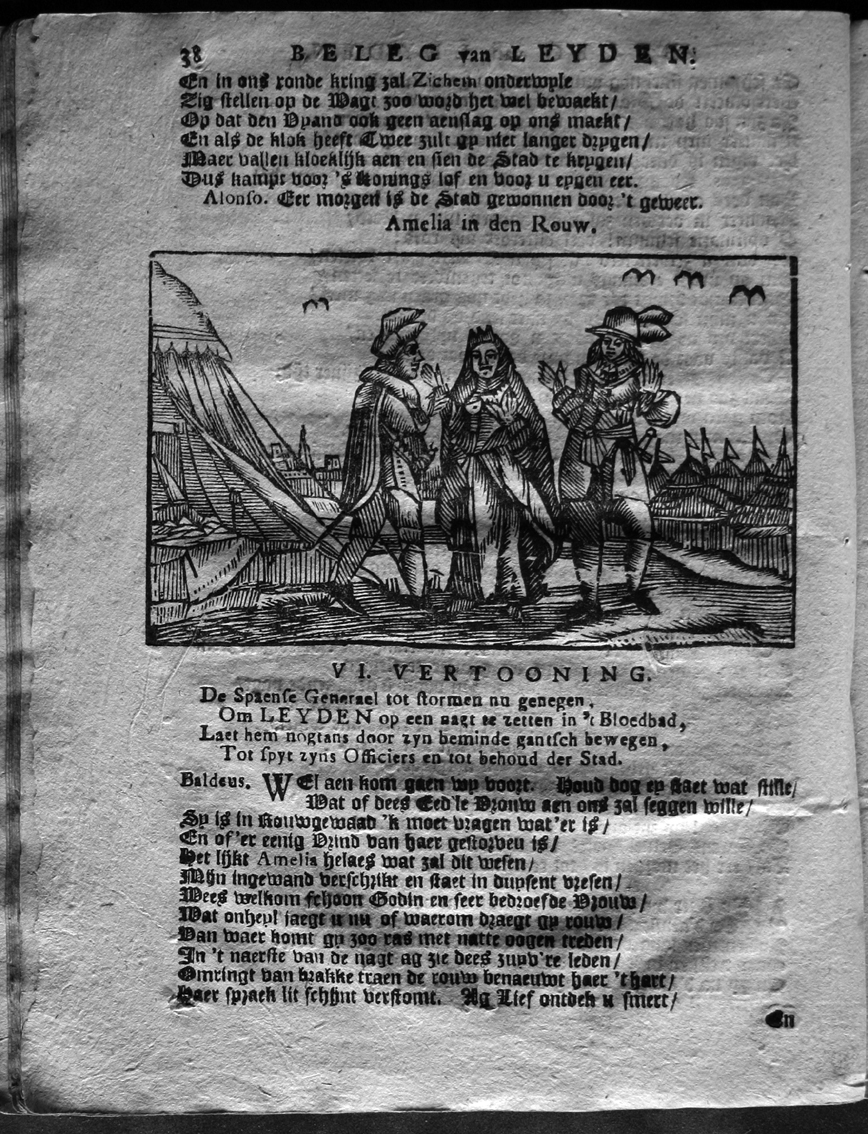 38 BELEG van LEYDEN.
En in ons ronde kring zal Zichem onderwyle
Zig stellen op de Wagt zoo word het wel bewaekt/
Op dat den Vyand ook geen aenslag op ons maekt/
En als de klok heeft Twee zult gy niet langer drygen/
Maer vallen kloeklijk aen en sien de Stad te krygen/
Dus kampt voor 's Konings lof en voor u eygen eer.
Alonso. Eer morgen is de Stad gewonnen door 't geweer.
Amelia in den Rouw.
VI. VERTOONING.
De Spaense Generael tot stormen nu genegen,
Om LEYDEN op een nagt te zetten in 't Bloedbad,
Laet hem nogtans door zyn beminde gantsch bewegen,
Tot spyt zyns Officiers en tot behoud der Stad.
Baldeus. WEl aen kom gaen wy voort. Houd dog ey staet wat stille/
Wat of dees Eed'le Vrouw aen ons zal seggen wille/
Sy is in Rouwgewaad 'k moet vragen wat'er is/
En of'er eenig Vrind van haer gestorven is/
Het lijkt Amelia helaes wat zal dit wesen/
Mijn ingewand verschrikt en staet in duysent vresen/
Wees welkom schoon Godin en seer bedroefde Vrouw/
Wat onheyl jaegt u nu of waerom draegt gy rouw/
Van waer komt gy zoo ras met natte oogen treden/
In 't naerste van de nagt ag zie dees zuyv're leden/
Omringt van brakke traen de rouw benaeuwt haer 't hart/
Haer spraek lit schijnt verstomt. Ag Lief ontdek u smert/
En